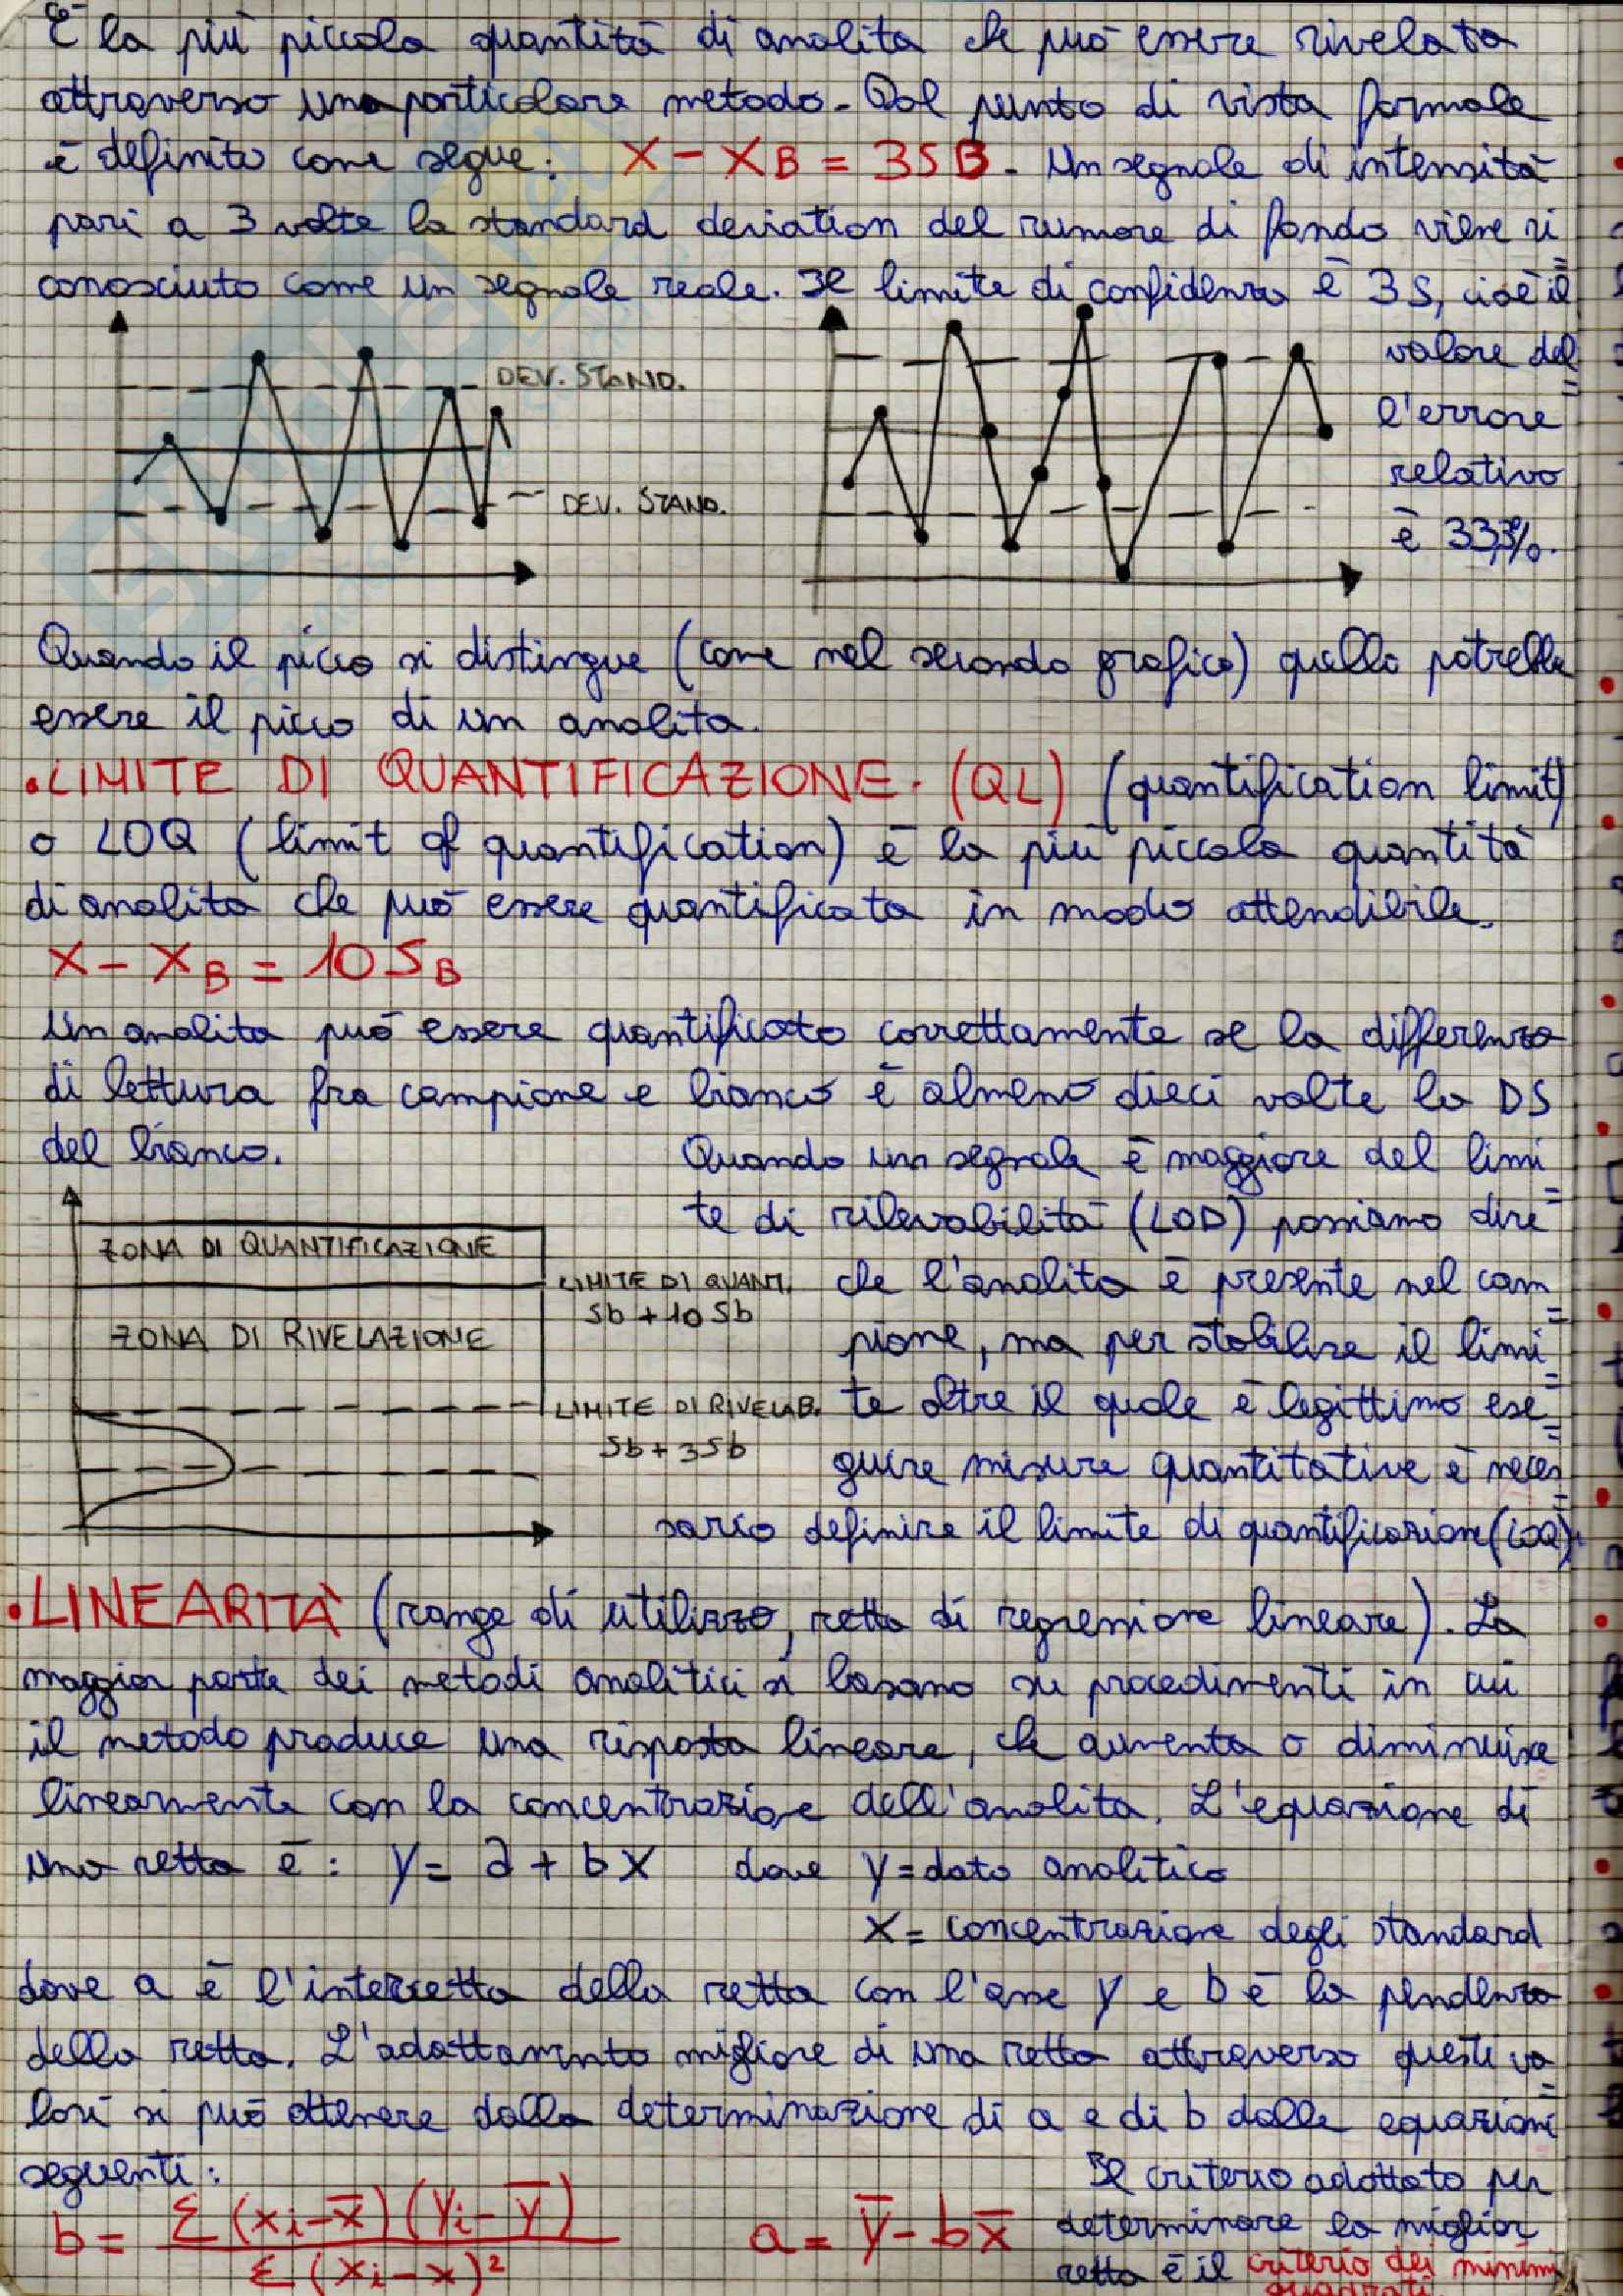 È la più piccola quantità di analita che può essere rivelata
attraverso una particolare metodo. Dal punto di vista formale
è definito come segue: X - XB = 3SB. Un segnale di intensità
pari a 3 volte la standard deviation del rumore di fondo viene ri
conosciuto come un segnale reale. Il limite di confidenza è 3S, cioè il
valore del
l'errore
relativo
è 33,3%.
DEV. STAND.
DEV. STAND.
Quando il picco si distingue (come nel secondo grafico) quello potrebbe
essere il picco di un analita.
• LIMITE DI QUANTIFICAZIONE. (QL) (quantification limit)
o LOQ (limit of quantification) è la più piccola quantità
di analita che può essere quantificata in modo attendibile.
X - XB = 10 SB
Un analita può essere quantificato correttamente se la differenza
di lettura fra campione e bianco è almeno dieci volte la DS
del bianco.
Quando un segnale è maggiore del limi
te di rilevabilità (LOD) possiamo dire
che l'analita è presente nel cam
pione, ma per stabilire il limi
te oltre il quale è legittimo ese
guire misure quantitative è neces
sario definire il limite di quantificazione (LOQ).
ZONA DI QUANTIFICAZIONE
LIMITE DI QUANT.
Sb + 10 Sb
ZONA DI RIVELAZIONE
LIMITE DI RIVELAB.
Sb + 3Sb
• LINEARITÀ (range di utilizzo, retta di regressione lineare). La
maggior parte dei metodi analitici si basano su procedimenti in cui
il metodo produce una risposta lineare, che aumenta o diminuisce
linearmente con la concentrazione dell'analita. L'equazione di
una retta è: y = a + b x dove y = dato analitico
x = concentrazione degli standard
dove a è l'intercetta della retta con l'asse y e b è la pendenza
della retta. L'adattamento migliore di una retta attraverso questi va
lori si può ottenere dalla determinazione di a e di b dalle equazioni
seguenti:
b = Σ (xi - x̄) (yi - ȳ) / Σ (xi - x)²
a = ȳ - b x̄
Il criterio adottato per
determinare la miglior
retta è il criterio dei minimi
quadrati